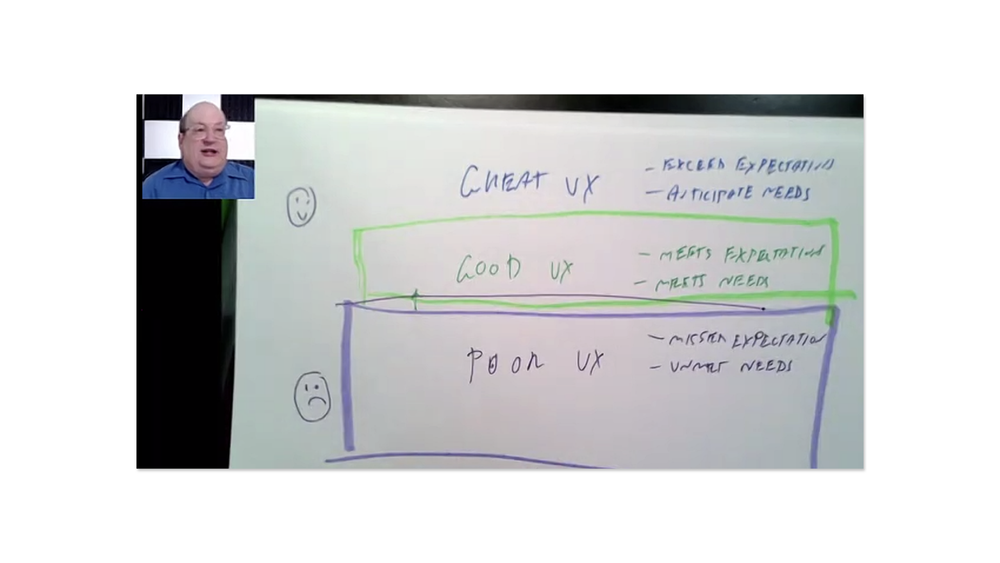 GREAT UX
- EXCEED EXPECTATIONS
- ANTICIPATE NEEDS
GOOD UX
- MEETS EXPECTATIONS
- MEETS NEEDS
POOR UX
- MISSED EXPECTATION
- UNMET NEEDS